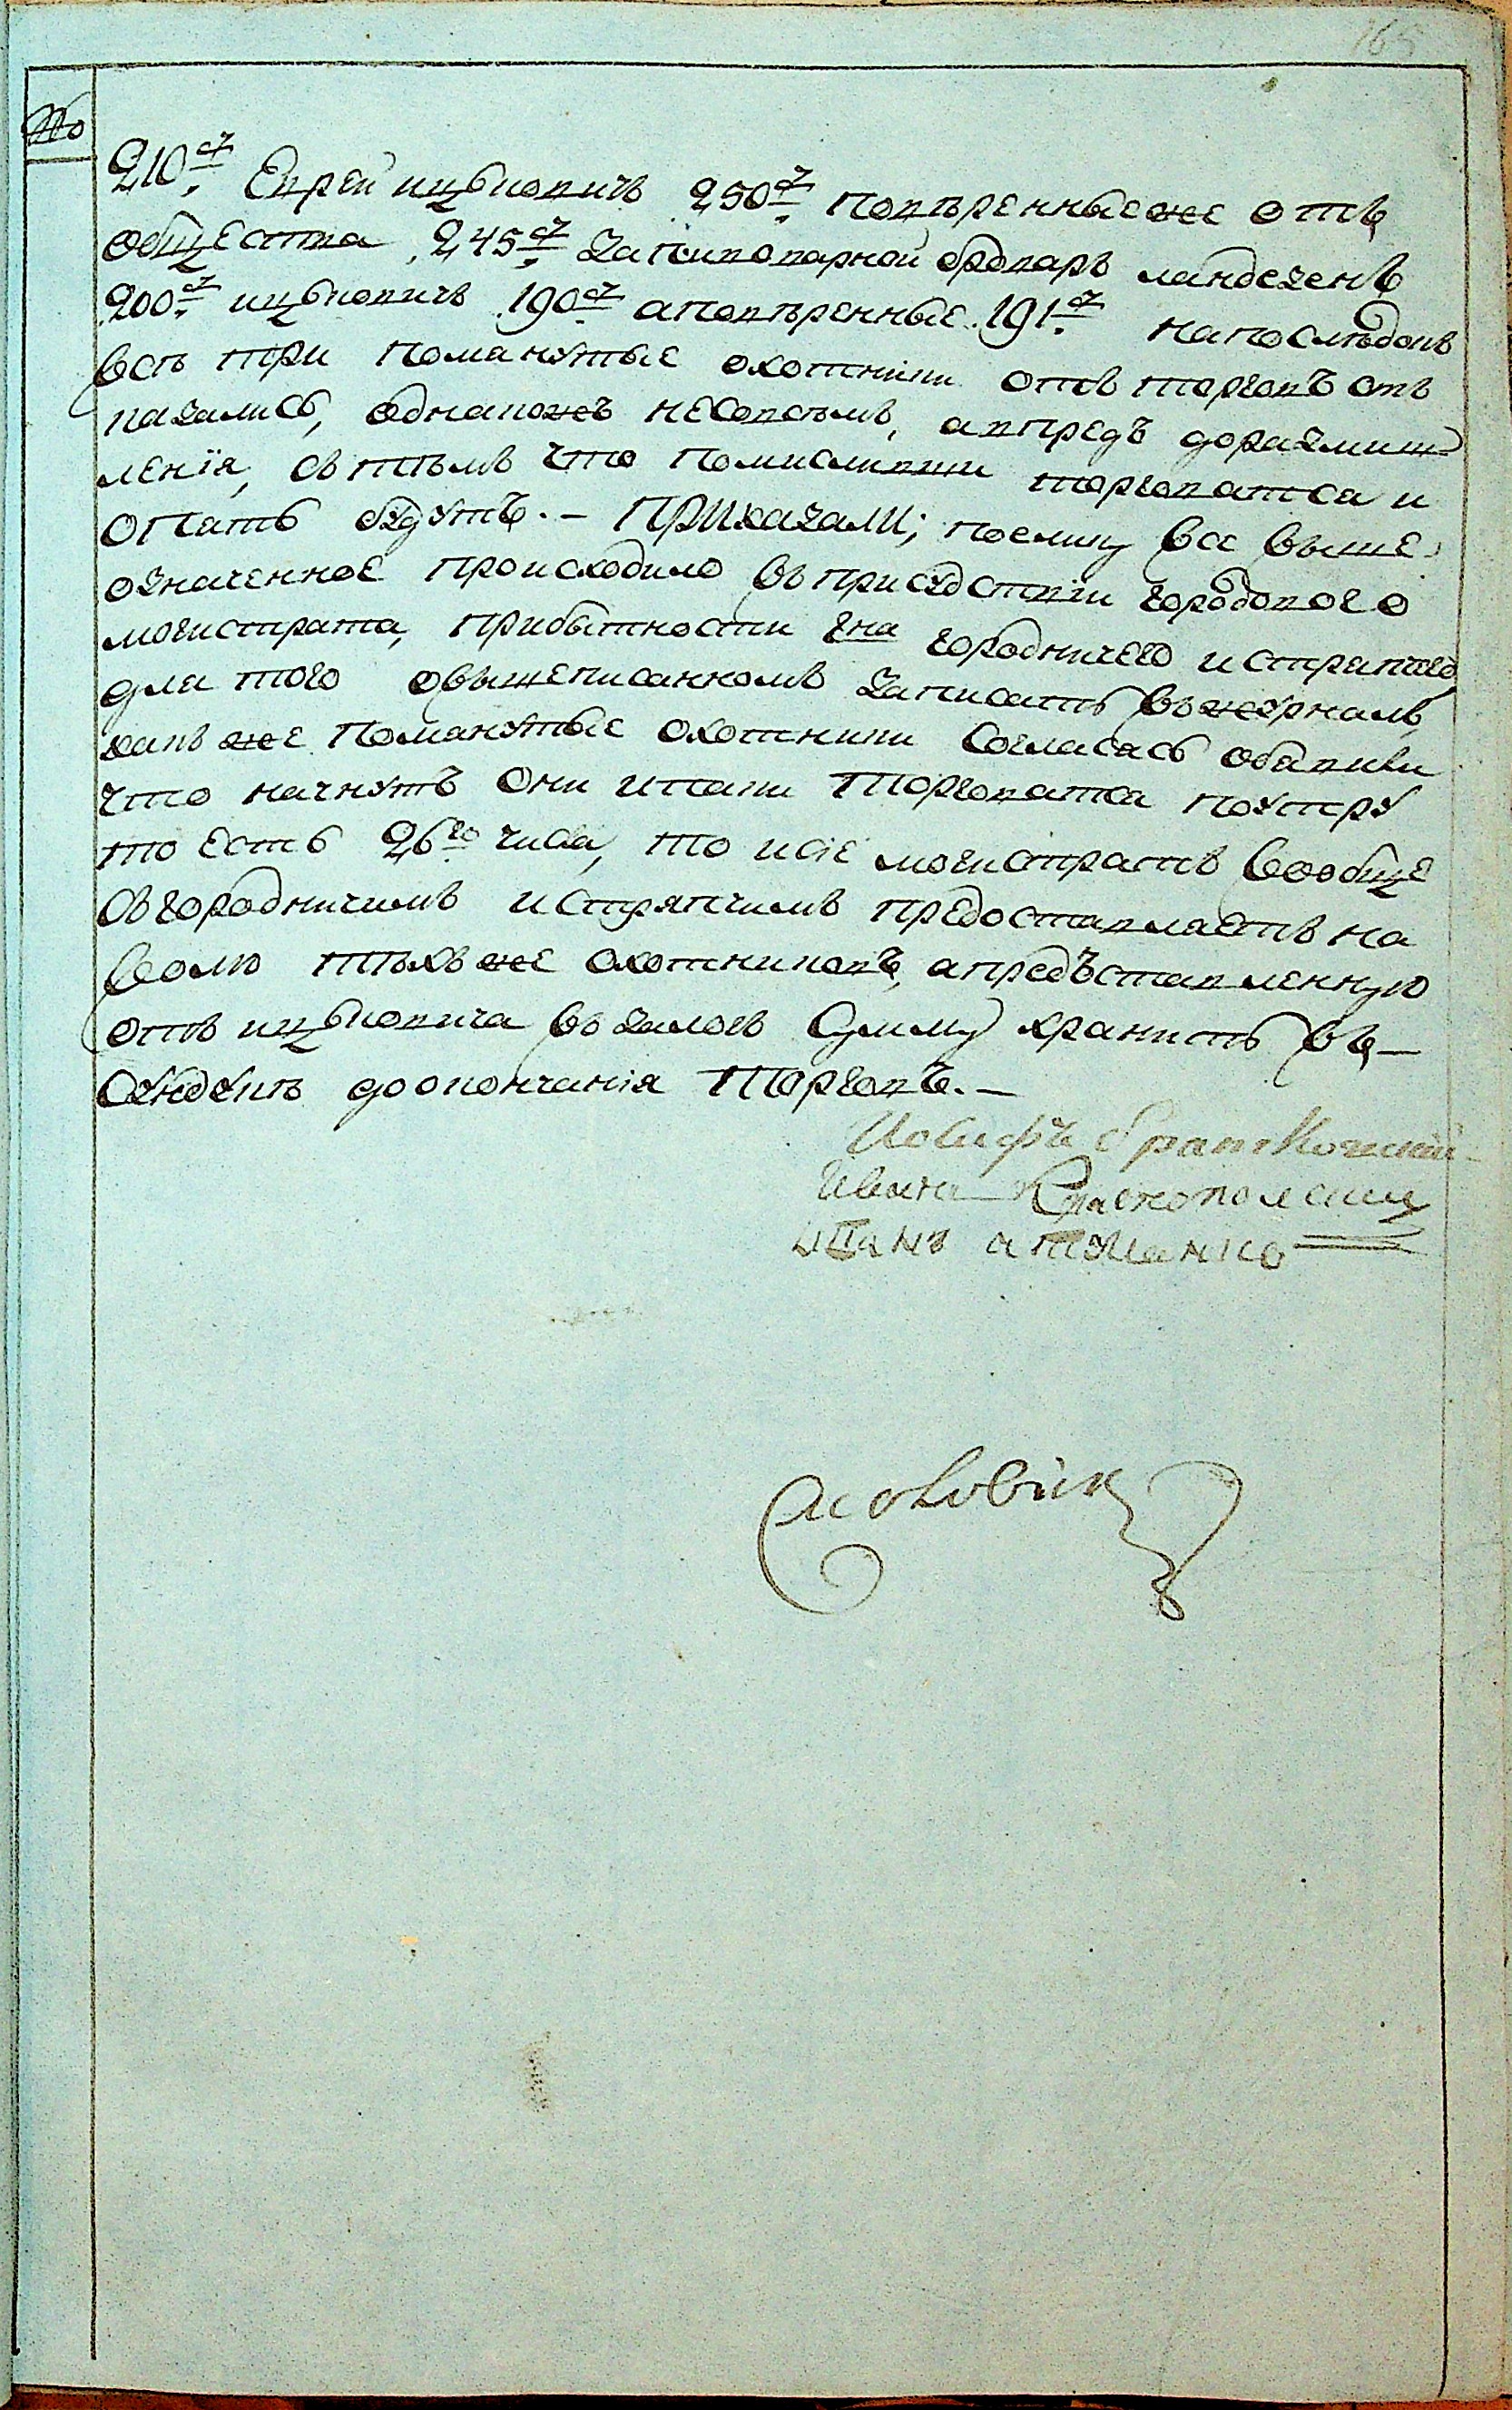 165
№
210 р. Еврей ицковичъ 250 р. поверенныеже отъ
общества 245 р. Запивоварной броваръ ландсенъ
200 р. ицковичъ 190 р. аповѣренные 191 р. напослѣдокъ
всѣ три помянутые охотники отъ торговъ отъ
казались, однакожъ несовсѣмъ, авпредъ доразмиш-
ленія, съ тѣмъ что помисливши торговатся и
опать будутъ. — ПРИказали; поелику все више-
означенное происходило въприсудствіи городового
магистрата, прибытности гна городничего истряпчого,
для того овышеписанномъ записать въжурналъ,
какъ же помянутые охотники согласясь объявили
что начнутъ они итаки торговатся поутру
то есть 26го числа, то исіе магистратъ вообще
съгородничимъ истряпчимъ предоставляетъ на
волю тѣхъ же охотниковъ, апредъставленную
отъ ицковича въ залогъ Сумму хранить въ —
Сундукѣ доокончанія торговъ. —
Иосифъ
Иванъ Краснополский